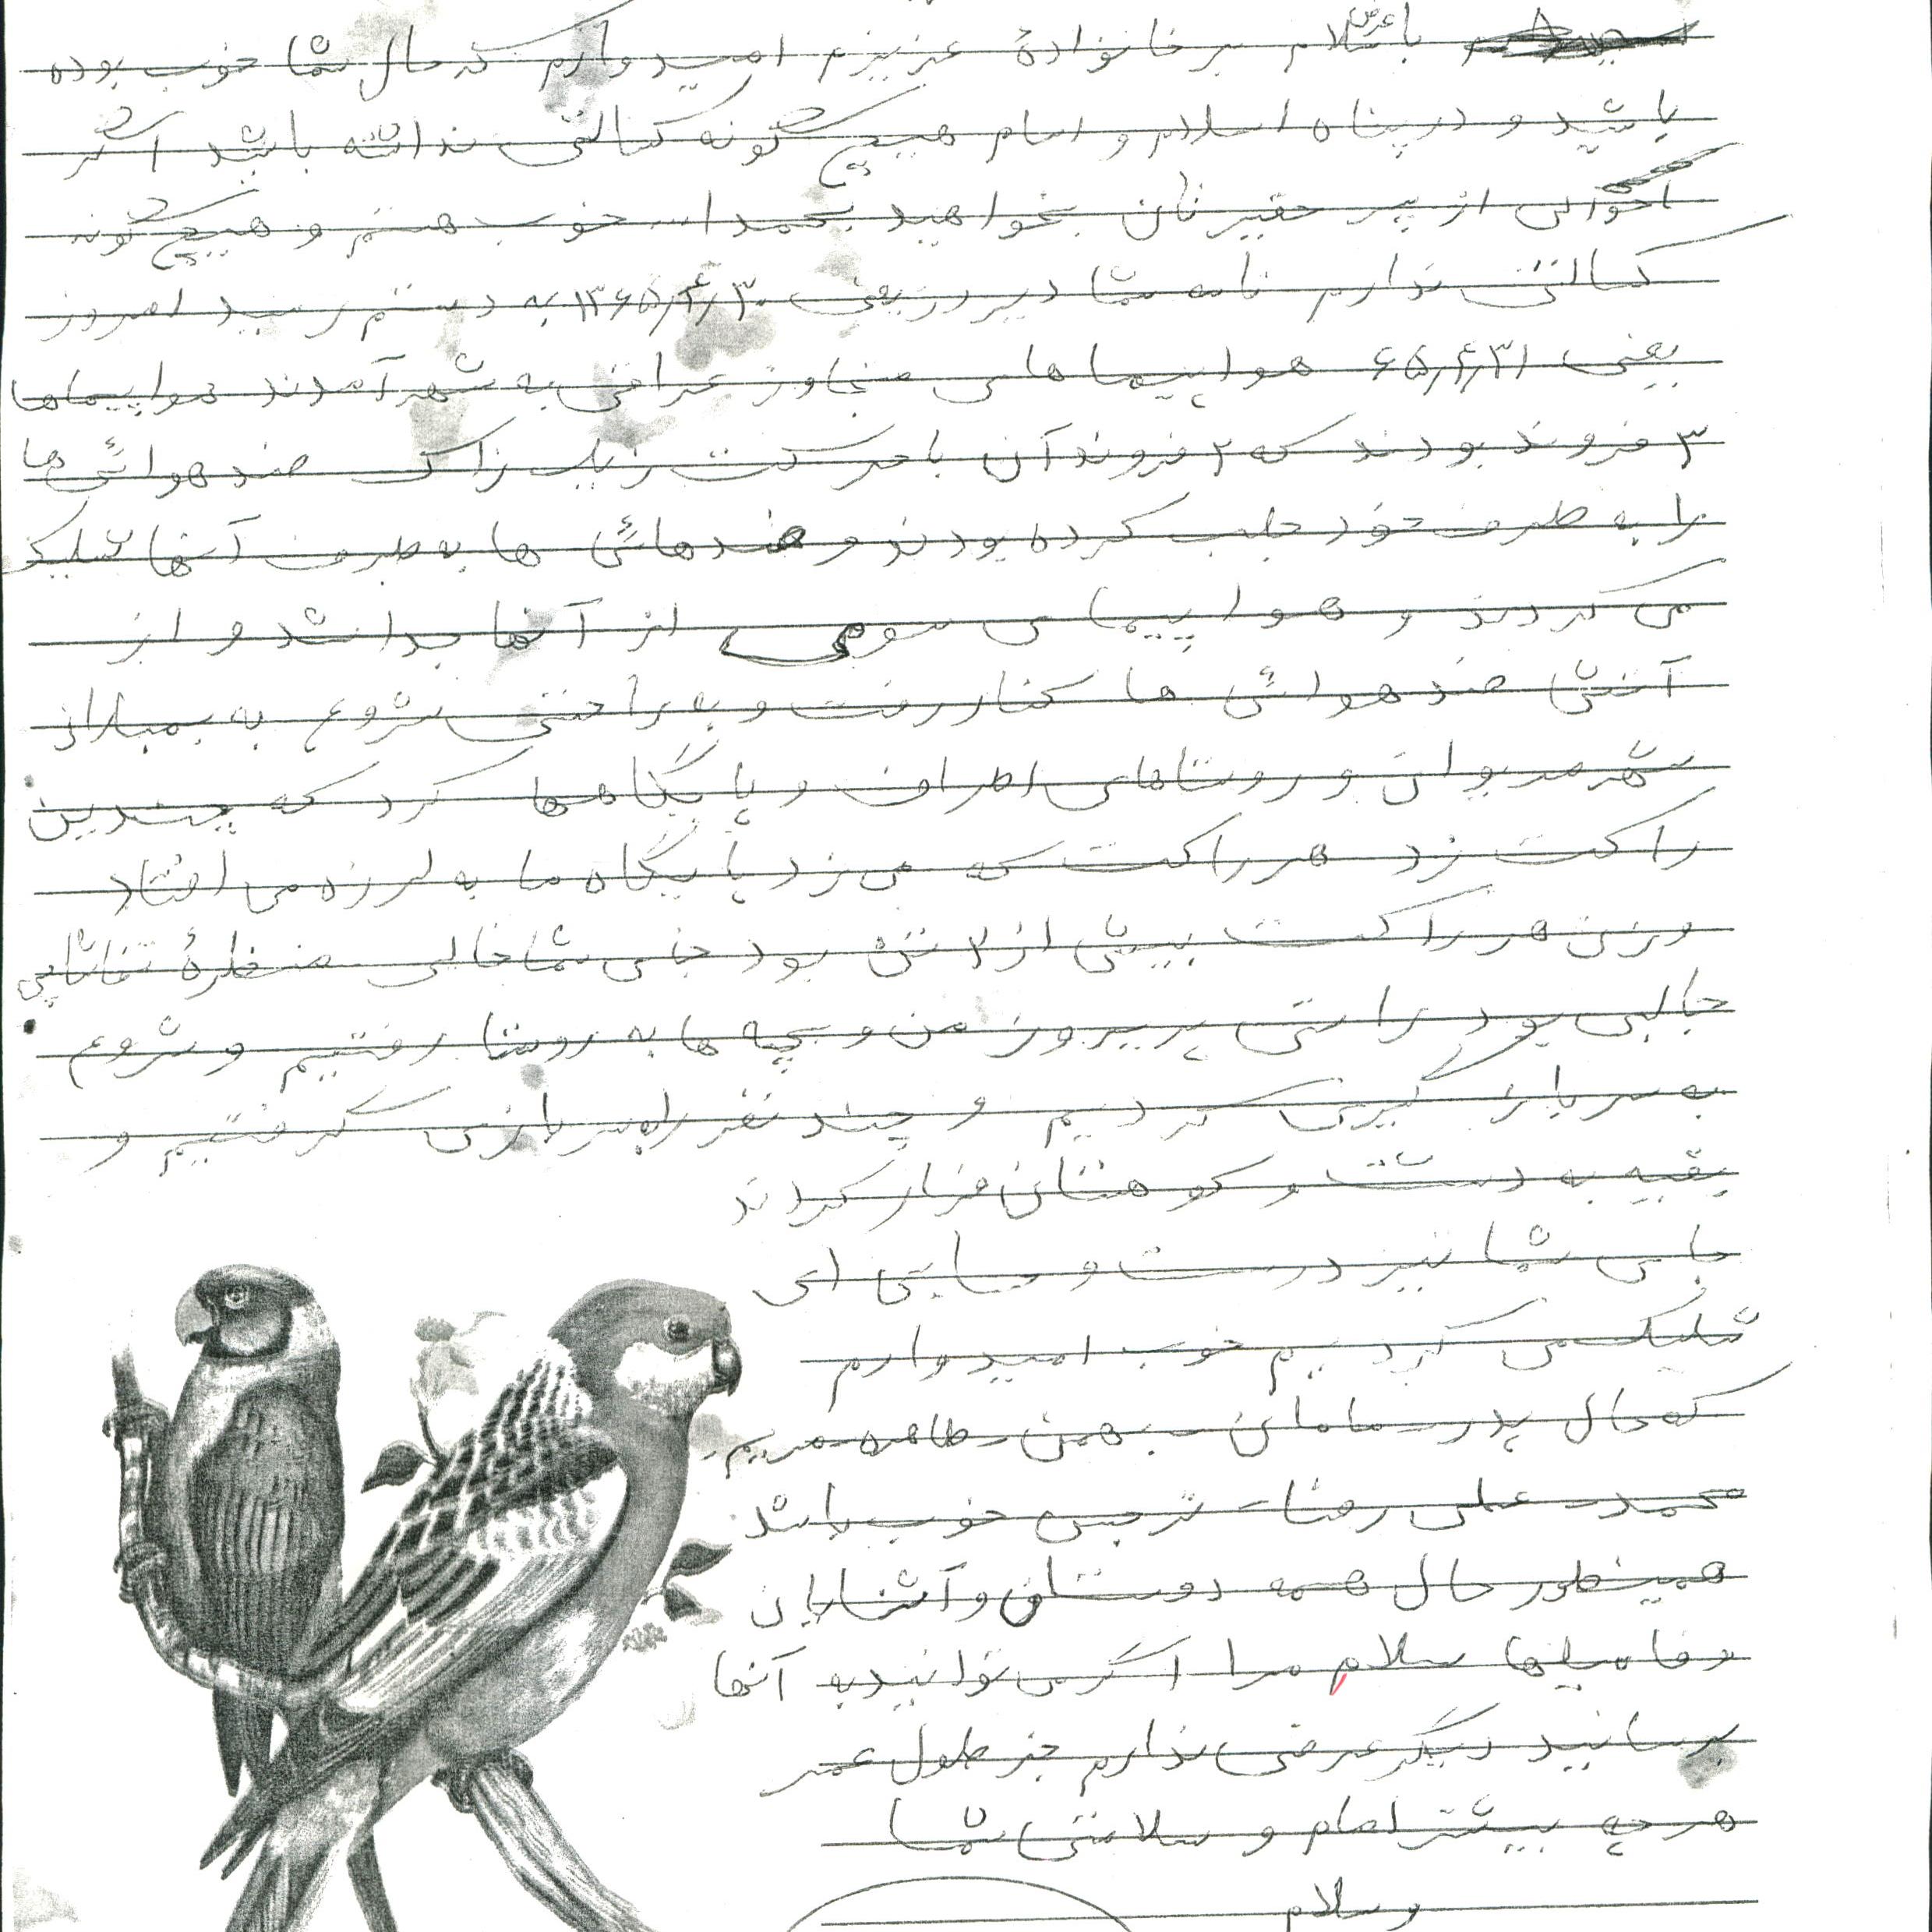 با عرض سلام بر خانوادهٔ عزیزم امیدوارم که حال شما خوب بوده
باشید و در پناه اسلام و امام هیچ گونه کسالتی نداشته باشد اگر
احوالی از پسر حقیرتان بخواهید بحمدالله خوب هستم و هیچ گونه
کسالتی ندارم نامه شما دیروز یعنی ۱۳۶۵/۴/۳۰ به دستم رسید امروز
یعنی ۶۵/۴/۳۱ هواپیما های متجاوز عراقی به شهر آمدند هواپیماها
۳ فروند بودند که ۲ فروند آن با حرکت زیک زاک ضد هوائی ها
را به طرف خود جلب کرده بودند و ضد هائی ها به طرف آنها شلیک
می کردند و هواپیمای سومی از آنها جدا شد و از
آتش ضد هوائی ها کنار رفت و به راحتی شروع به بمباران
شهر مریوان و روستاهای اطراف و پایگاهها کرد که چندین
راکت زد هر راکت که می زد پایگاه ما به لرزه می افتاد
وزن هر راکت بیش از ۷ تن بود جای شما خالی منظرهٔ تماشایی
جالبی بود راستی پریروز من و بچه ها به روستا رفتیم و شروع
به سرباز گیری کردیم و چند نفر را به سربازی گرفتیم و
بقیه به دشت و کوهستان فرار کردند
جای شما نیز درست و حسابی ای
شلیک می کردیم خوب امیدوارم
که حال پدر - مامان - بهمن - طاهره - مریم -
محمد - علی رضا - نرجس خوب باشد
همینطور حال همه دوستان و آشنایان
و فامیلها سلام مرا اگر می توانید به آنها
برسانید دیگر عرضی ندارم جز طول عمر
هر چه بیشتر امام و سلامتی شما
وسلام